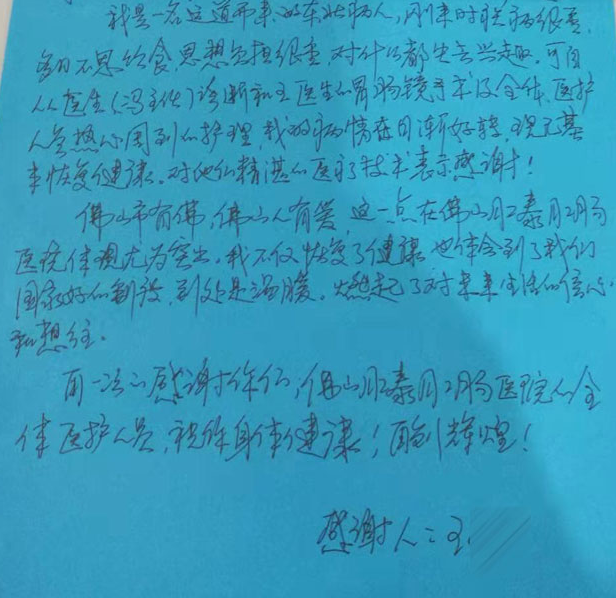 我是一名远道而来的东北病人，刚来时肛病很重，
每日不思饮食，思想负担很重，对什么都失去兴趣。可自
从医生（冯主任）诊断和王医生的胃肠镜手术及全体医护
人员热心周到的护理，我的病情在日渐好转，现已基
本恢复健康。对他们精湛的医疗技术表示感谢！
佛山市有佛，佛山人有爱，这一点在佛山肛泰肛肠
医院体现尤为突出。我不仅恢复了健康，也体会到了我们
国家好的制度，到处是温暖。燃起了对未来生活的信心
和想往。
再一次的感谢你们，佛山肛泰肛肠医院的全
体医护人员，祝你身体健康！再创辉煌！
感谢人：王